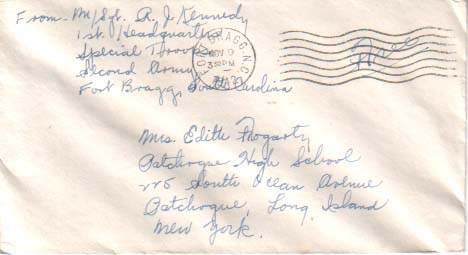 From - M/Sgt. R. J. Kennedy
1st. Headquarters
Special Troops
Second Army
Fort Bragg, South Carolina
FT. BRAGG, N.C.
NOV 9
3 30 PM
Free
Mrs. Edith Fogarty
Patchogue High School
225 South Ocean Avenue
Patchogue, Long Island
New York.